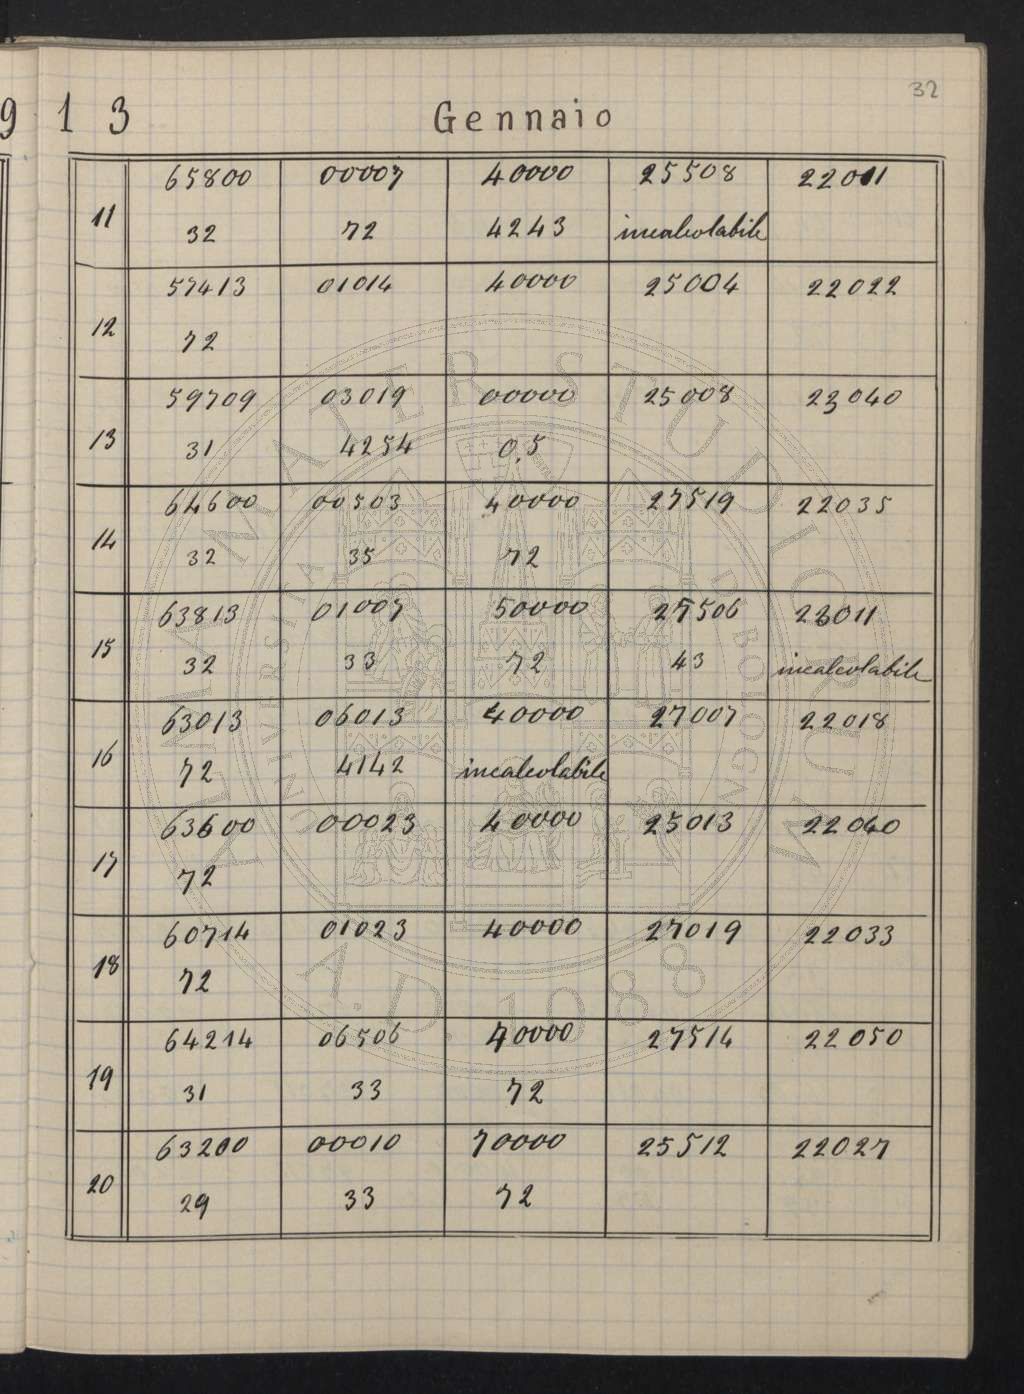 32
9 1 3 Gennaio
65800 00007 40000 25508 22011
11
32 72 4243 incalcolabile
57413 01014 40000 25004 22022
12
72
59709 03019 00000 25008 23040
13
31 4254 0,5
64600 00503 40000 27519 22035
14
32 35 72
63813 01007 50000 27506 23011
15
32 33 72 43 incalcolabile
63013 06013 40000 27007 22018
16
72 4142 incalcolabile
63600 00023 40000 25013 22040
17
72
60714 01023 40000 27019 22033
18
72
64214 06506 40000 27514 22050
19
31 33 72
63200 00010 70000 25512 22027
20
29 33 72
ALMA MATER STUDIORUM
UNIVERSITÀ DI BOLOGNA
A.D. 1088